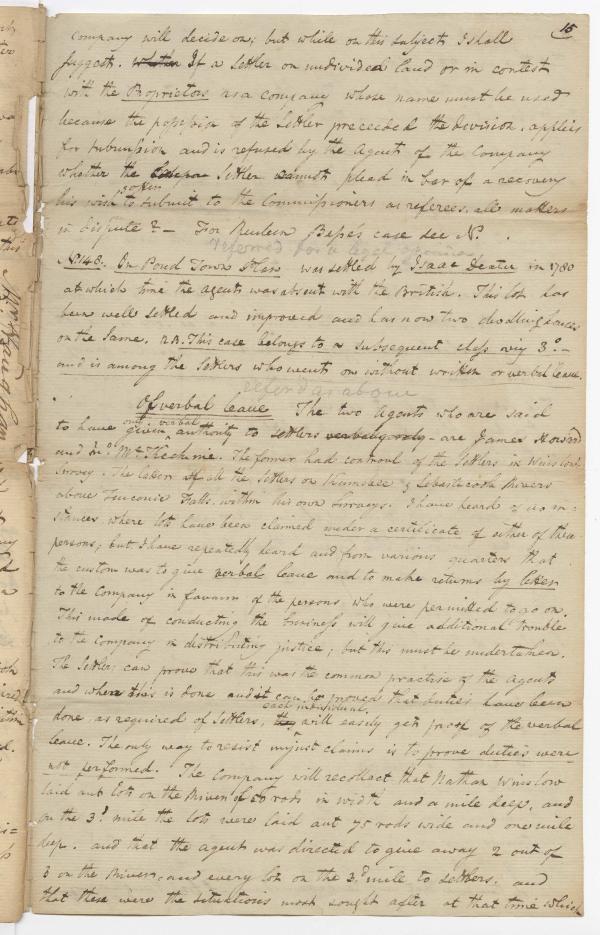 15
Company will decide on; but while on this subject I shall
suggest. Whether If a settler on undivided land or in contest
with the Proprietors as a company whose name must be used
because the possession of the Settler preceeded the division, applies
for submission and is refused by the Agent of the Company
whether the Settler must plead in bar of a recovery
his wish to submit to the Commissioners as referees, all matters
in dispute?— For Reuben Besses case see N.
referred for a legal opinion
No. 148. On Pond Town Plan was settled by Isaac Dexter in 1780
at which time the agents was absent with the British. This lot has
been well settled and improved and has now two dwelling houses
on the same. N.B. This case belongs to a subsequent class viz 3o.—
and is among the settlers who went on without written or verbal leave.
referd as above
Of verbal leave The two Agents who are said
only verbal
to have given authority to settlers verbally only - are James Howard
and The former had controul of the Settlers in Winslows
Survey. The latter all the Settlers on Kennebec & Sebasticook Rivers
above Ticonic Falls, within his own Surveys. I have heard of no in-
stances where lots have been claimed under a certificate of either of these
persons; but I have repeatedly heard and from various quarters that
the custom was to give verbal leave and to make returns by letter
to the Company in favour of the persons who were permitted to go on.
This mode of conducting the business will give additional trouble
to the Company in distributing justice; but this must be undertaken.
The Settlers can prove that this was the common practise of the Agents
and where this is done and it can be proved that duties have been
each individual,
done, as required of Settlers, they will easily get proof of the verbal
leave. The only way to resist unjust claims is to prove duties were
not performed. The Company will recollect that Nathan Winslow
laid out lots on the River of 50 rods in width and a mile deep, and
on the 3d mile the lots were laid out 75 rods wide and one mile
deep. and that the agent was directed to give away 2 out of
3 on the River, and every lot on the 3d mile to settlers. and
that these were the situations most sought after at that time which